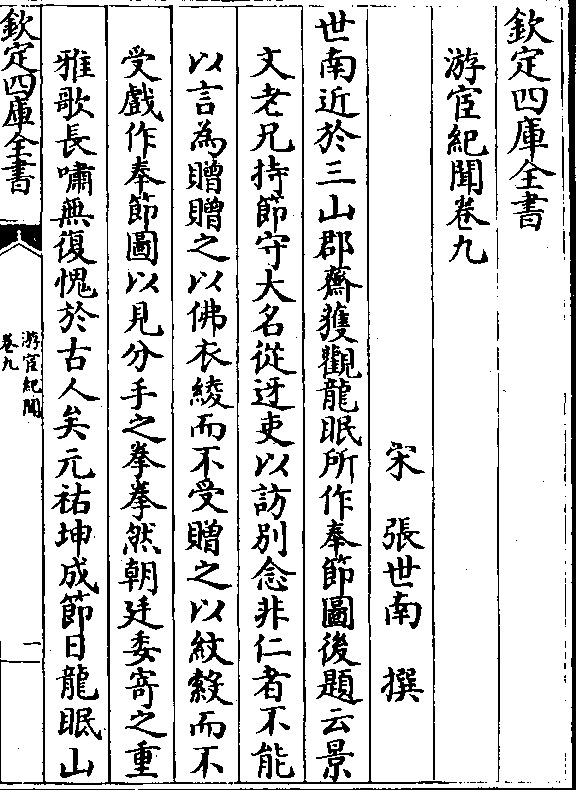 欽定四庫全書
游宦紀聞卷九
宋　張世南　撰
世南近於三山郡齋獲觀龍眠所作奉節圖後題云景
文老兄持節守大名從迓吏以訪別念非仁者不能
以言為贈贈之以佛衣綾而不受贈之以紋縠而不
受戲作奉節圖以見分手之拳拳然朝廷委寄之重
雅歌長嘯無復愧於古人矣元祐坤成節日龍眠山
欽定四庫全書
游宦紀聞
卷九
一